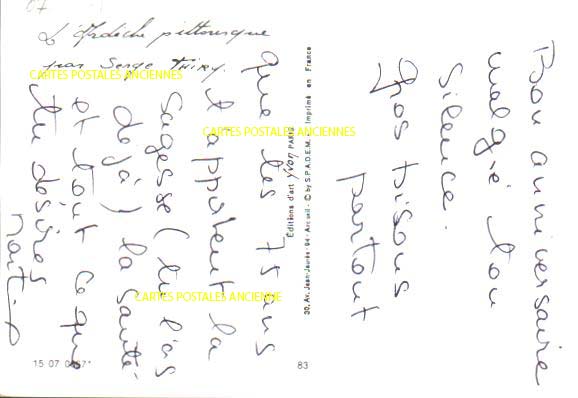 L'Ardèche pittoresque
par Serge THIRY.
CARTES POSTALES ANCIENNES
CARTES POSTALES ANCIENNES
CARTES POSTALES ANCIENNE
Bon anniversaire
malgré ton
silence.
Gros bisous
partout
Que tes 75 ans
t'apportent la
sagesse (tu l'as
déjà) la santé
et tout ce que
tu désires
Editions d'art yvon PARIS
30, Av. Jean-Jaurès - 94 - Arcueil - © by S.P.A.D.E.M. Imprimé en France
15 07
83